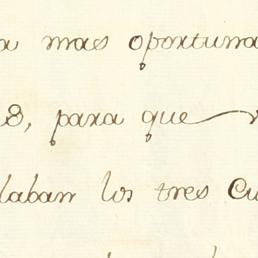 a mas oportuna
s, para que
laban los tres Cu